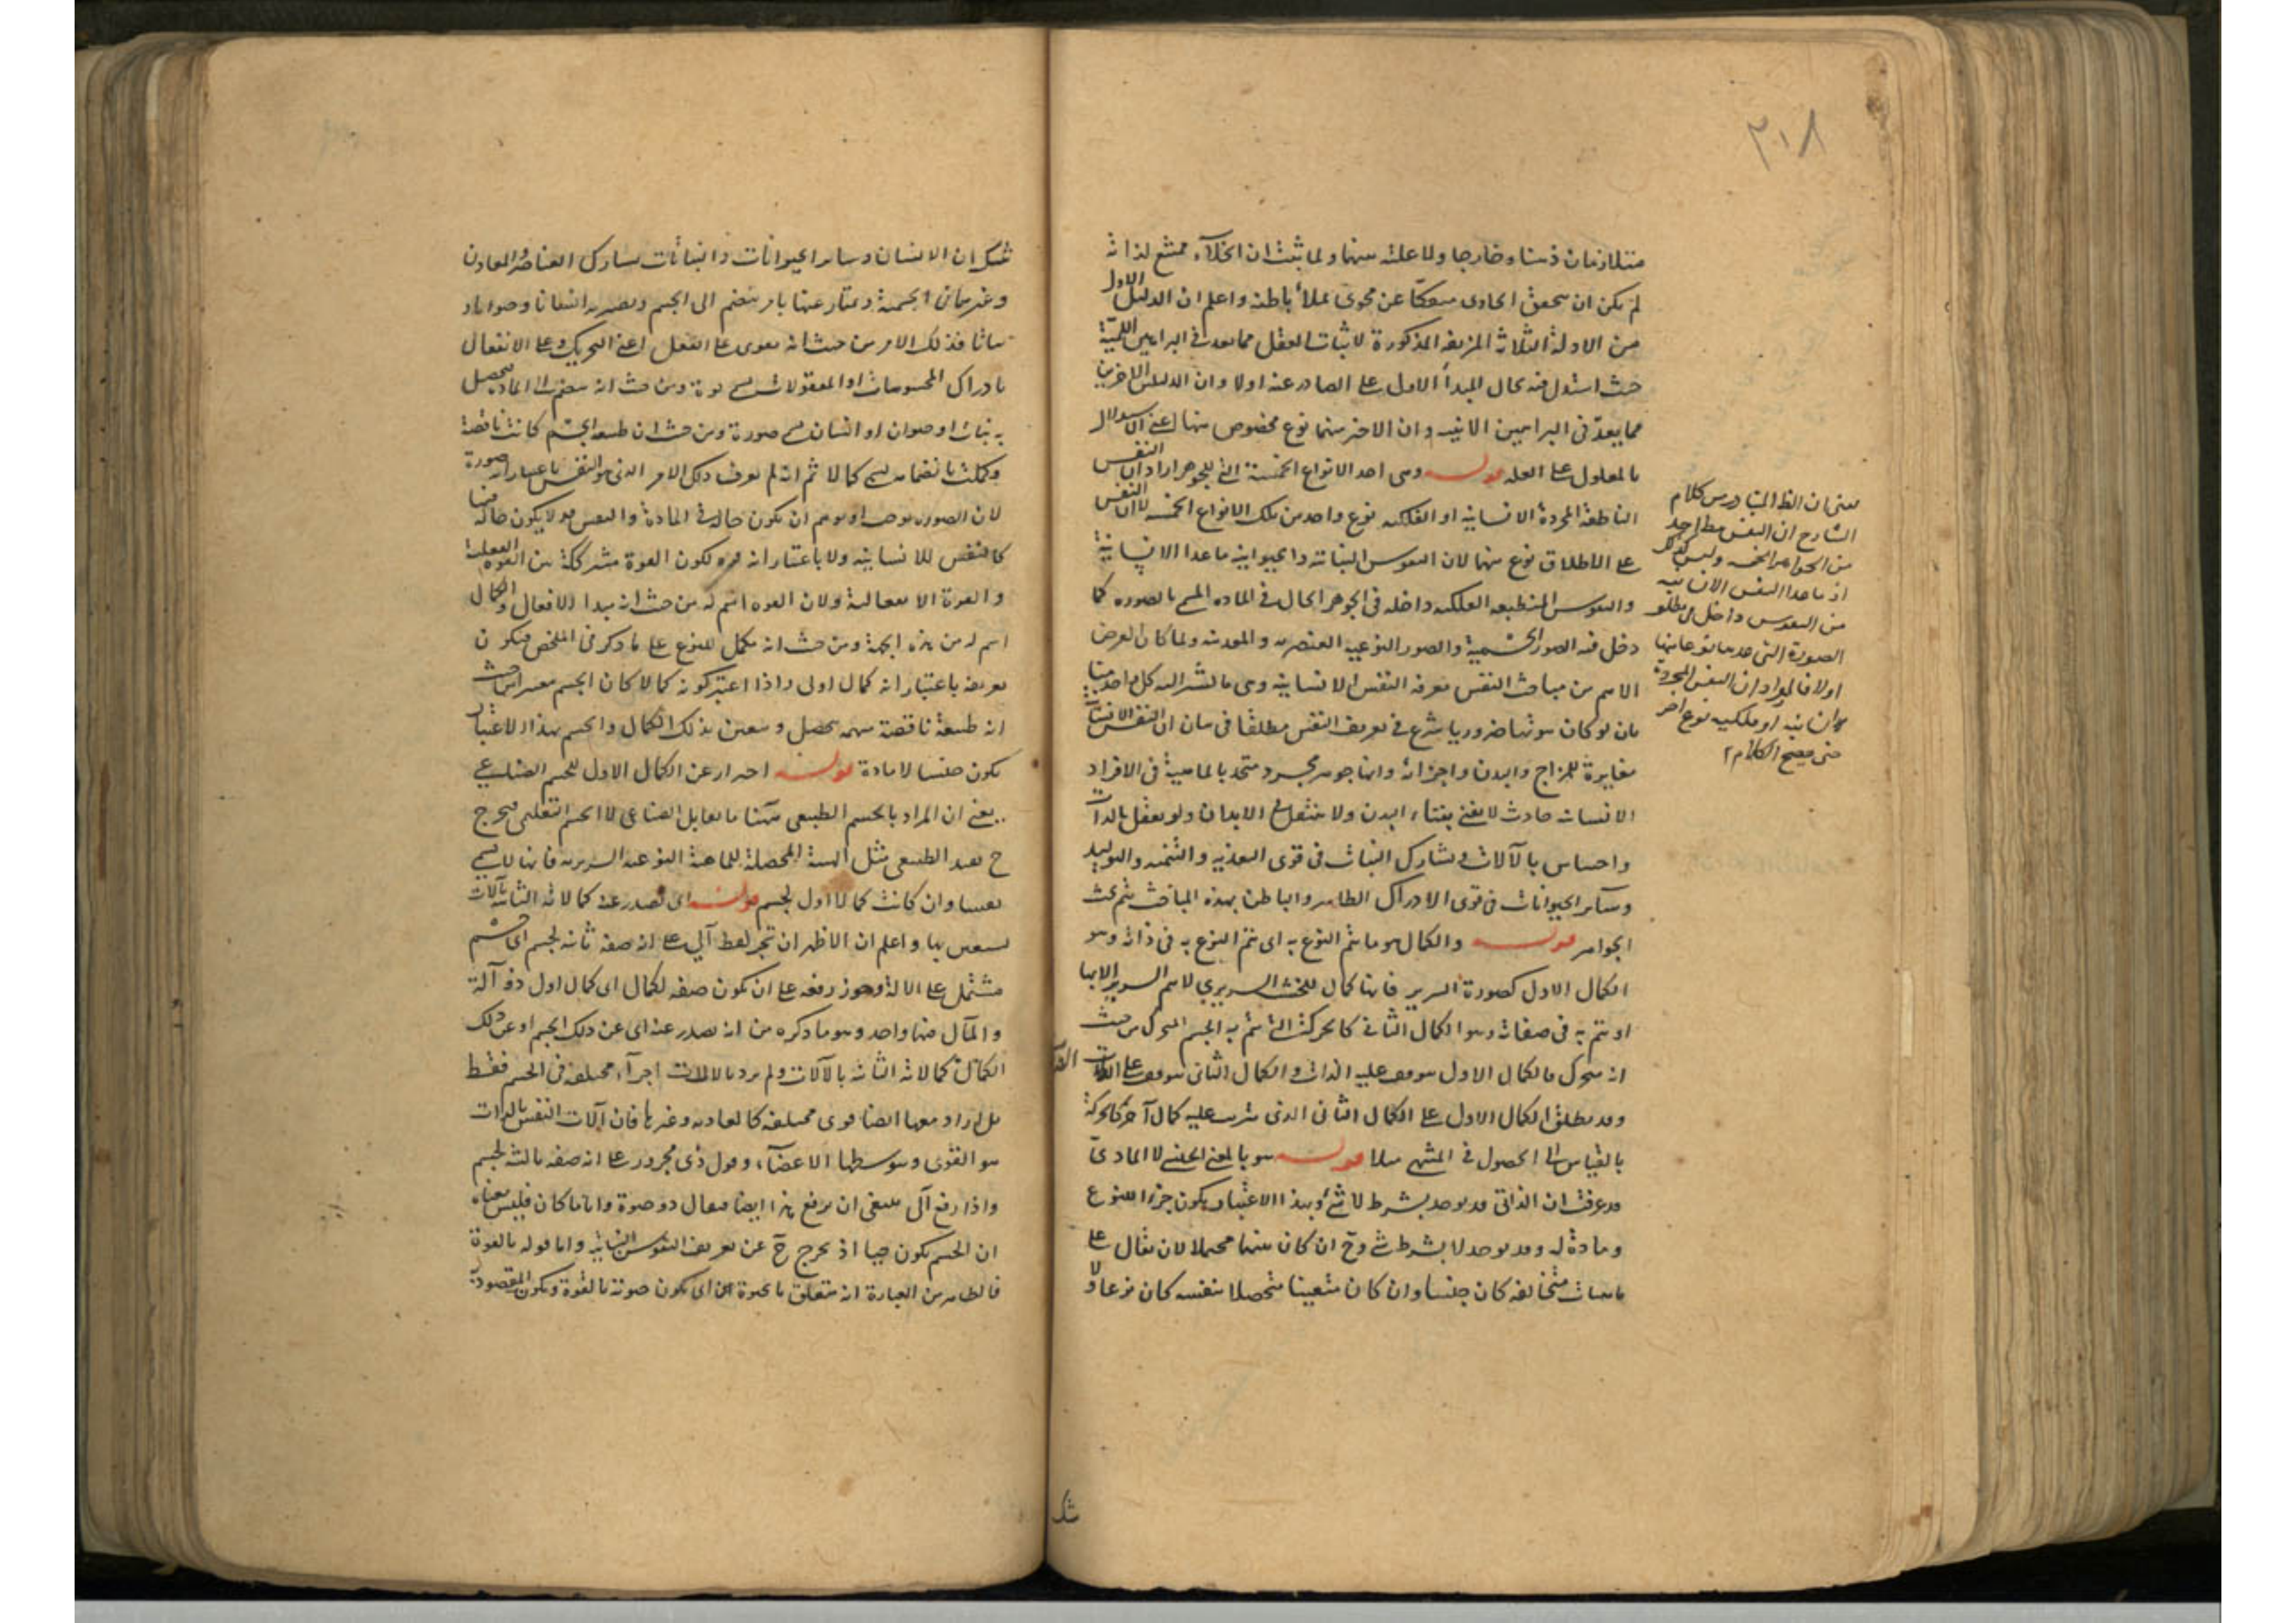 ٣١٨
متلازمان ذهنا وخارجا ولا علية بينهما ولما ثبت ان الخلاء ممتنع لذاته
لم يكن ان يتحقق الحاوى منفكا عن محوى يملأ باطنه واعلم ان الدليل الاول
من الادلة الثلاثة المزيفة المذكورة لاثبات العقل مما يعد فى البراهين اللمية
حيث استدل فيه بحال المبدأ الاول على الصادر عنه اولا وان الدليلين الاخيرين
مما يعد فى البراهين الانية وان الاخير منهما نوع مخصوص منها اعنى الاستدلال
بالمعلول على العلة قوله وهى احد الانواع الخمسة التى للجوهر اراد ان النفس
الناطقة المجردة الانسانية او الفلكية نوع واحد من تلك الانواع الخمسة لا ان النفس
على الاطلاق نوع منها لان النفوس النباتية والحيوانية ما عدا الانسانية
والنفوس المنطبعة الفلكية داخلة فى الجوهر الحال فى المادة المسمى بالصورة كما
دخل فيه الصور الجسمية والصور النوعية العنصرية والمعدنية ولما كان الغرض
الاهم من مباحث النفس معرفة النفس الانسانية وهى ما يشير اليه كل احد بانا
بان لو كان ثبوتها ضروريا شرع فى تعريف النفس مطلقا فى بيان ان النفس الانسانية
مغايرة للمزاج والبدن واجزائه وانها جوهر مجرد متحد بالماهية فى الافراد
الانسانية حادث لا يفنى بفناء البدن ولا ينتقل فى الابدان وله تعقل بالذات
واحساس بالآلات ويشارك النبات فى قوى التغذية والتنمية والتوليد
وسائر الحيوانات فى قوى الادراك الظاهر والباطن بهذه المباحث يتم بحث
الجواهر قوله والكمال هو ما يتم النوع به اى يتم النوع به فى ذاته وهو
الكمال الاول كصورة السرير فانها كمال للخشب السريرى لا يتم السرير الا بها
او يتم به فى صفاته وهو الكمال الثانى كالحركة التى يتم به الجسم المتحرك من حيث
انه متحرك فالكمال الاول يتوقف عليه الذات والكمال الثانى يتوقف على الذات
وقد يطلق الكمال الاول على الكمال الثانى الذى يترتب عليه كمال آخر كالحركة
بالقياس الى الحصول فى المنتهى مثلا قوله هو بالمعنى الجنسى لا المادى
قد عرفت ان الذاتى قد يوجد بشرط لا شئ وبهذا الاعتبار يكون جزءا للنوع
ومادة له وقد يوجد لا بشرط شئ وح ان كان مبهما محتملا لان يقال على
ماهيات متخالفة كان جنسا وان كان متعينا متحصلا بنفسه كان نوعا ولا
يعنى ان الظ المتبادر من كلام
الشارح ان النفس مطلقا احد
من الجواهر الخمسة وليس كذلك
اذ ما عدا النفس الانسانية
من النفوس داخل فى مطلق
الصورة التى عدها نوعا منها
اولا فالمراد ان النفس المجردة
انسانية او فلكية نوع اخر
حتى يصح الكلام
شك
شك ان الانسان وسائر الحيوانات والنباتات يشارك العناصر والمعادن
وغيرهما فى الجسمية ويمتاز عنها بامر ينضم الى الجسم ويصير به انسانا وحيوانا و
نباتا فذلك الامر من حيث انه يقوى على الفعل اعنى التحريك وعلى الانفعال
بادراك المحسوسات او المعقولات يسمى قوة ومن حيث انه ينضم الى المادة فيحصل
به نبات او حيوان او انسان يسمى صورة ومن حيث ان طبيعة الجنس كانت ناقصة
وكملت بانضمامه يسمى كمالا ثم انه لم يعرف ذلك الامر الذى هو النفس باعتبار انه صورة
لان الصورة يوجب او توهم ان يكون حالة فى المادة والنفس قد لا يكون حالة فيها
كالنفس الانسانية ولا باعتبار انه قوة لكون القوة مشتركة بين القوة الفعلية
والقوة الانفعالية ولان القوة اسم له من حيث انه مبدأ الافعال والكمال
اسم له من هذه الجهة ومن حيث انه مكمل للنوع على ما ذكر فى الملخص فيكون
تعريفه باعتبار انه كمال اولى واذا اعتبر كونه كمالا كان الجسم معتبرا من حيث
انه طبيعة ناقصة مبهمة يتحصل ويتعين بذلك الكمال والجسم بهذا الاعتبار
يكون جنسا لا مادة قوله احتراز عن الكمال الاول للجسم الصناعى
يعنى ان المراد بالجسم الطبيعى هيهنا ما يقابل الصناعى لا الجسم التعليمى فيخرج
ح بقيد الطبيعى مثل الهيئة المحصلة للماهية النوعية السريرية فانها لا يسمى
نفسا وان كانت كمالا اول لجسم قوله اى يصدر عنه كمالاته الثانية بآلات
يستعين بها واعلم ان الاظهر ان تجر لفظ آلى على انه صفة ثانية لجسم اى جسم
مشتمل على الآلة ويجوز رفعه على ان يكون صفة لكمال اى كمال اول ذو آلة
والمآل فيها واحد وهو ما ذكره من انه يصدر عنه اى عن ذلك الجسم او عن ذلك
الكمال كمالاته الثانية بالآلات ولم يرد بالآلات اجزاء مختلفة فى الجسم فقط
بل اراد معها ايضا قوى مختلفة كالغاذية وغيرها فان آلات النفس بالذات
هو القوى وبتوسطها الاعضاء وقول ذى مجرور على انه صفة ثالثة لجسم
واذا رفع آلى ينبغى ان يرفع هذا ايضا فيقال ذو حيوة واياما كان فليس معناه
ان الجسم يكون حيا اذ يخرج ح عن تعريف النفوس النباتية واما قوله بالقوة
فالظاهر من العبارة انه متعلق بالحيوة اى يكون حيوته بالقوة ويكون المقصود